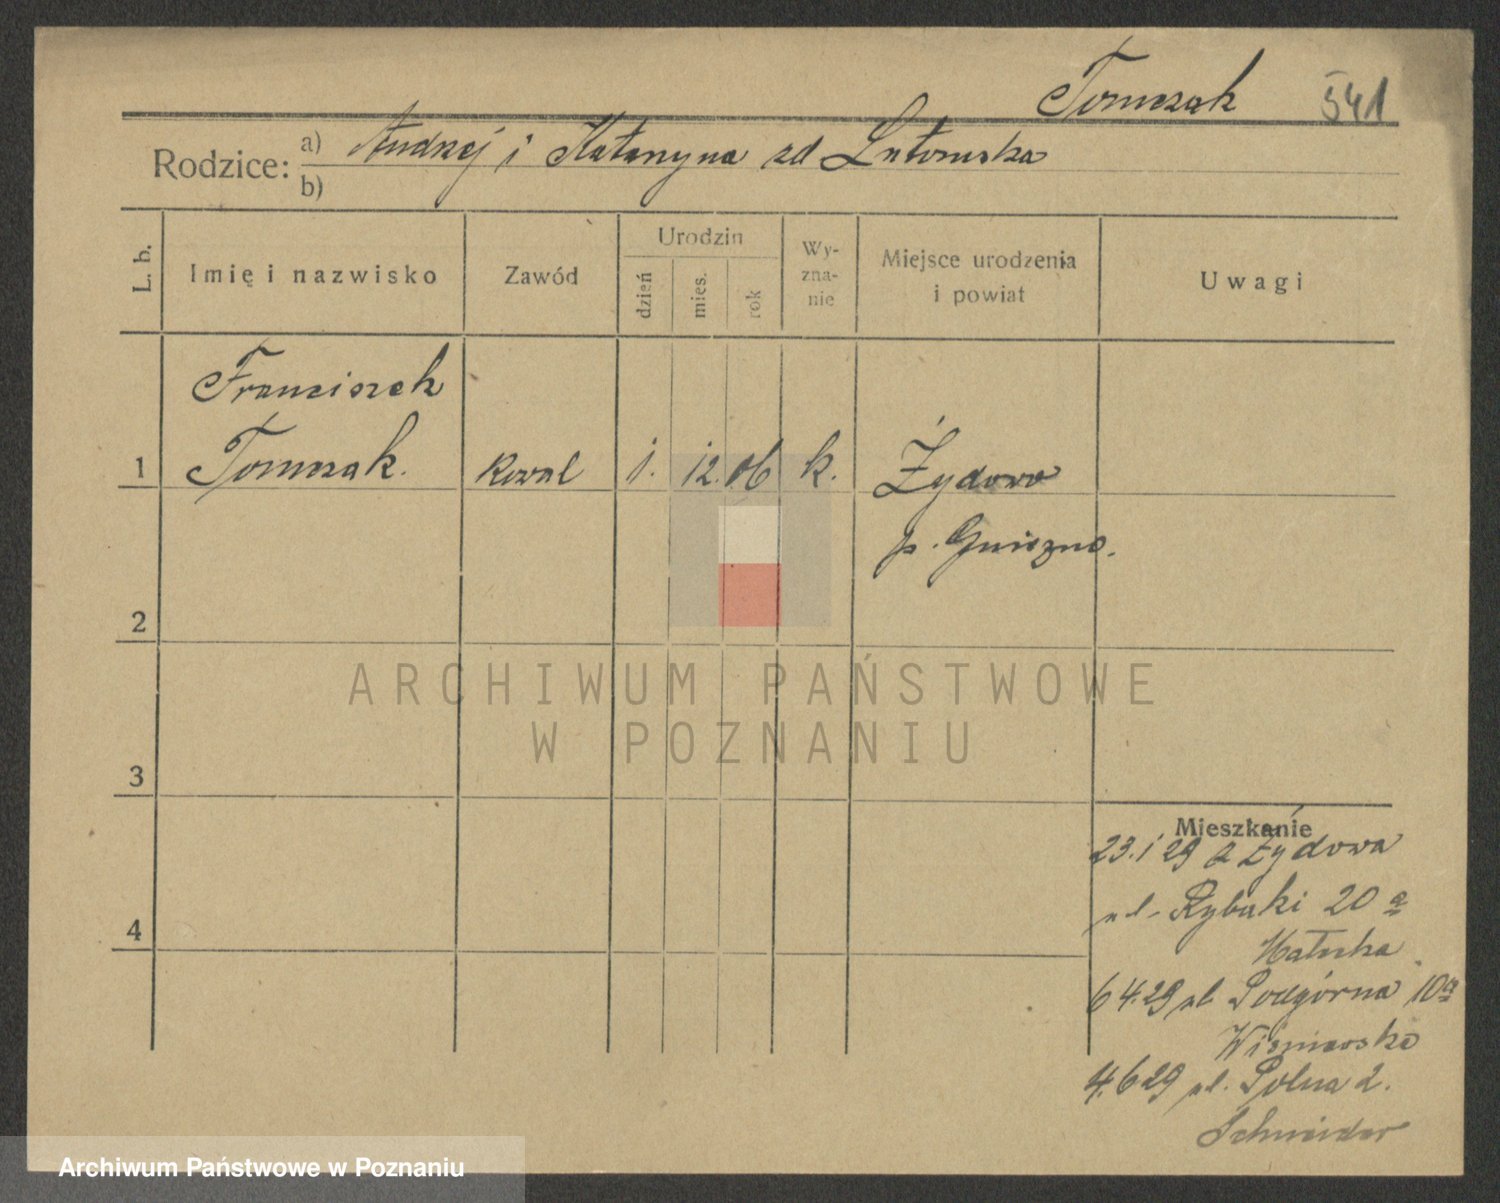 Tomczak 541
Rodzice: a) Andrzej i Katarzyna zd Lutomska
b)
L. b. Imię i nazwisko Zawód Urodzin dzień mies. rok Wy-zna-nie Miejsce urodzenia i powiat Uwagi
Franciszek
1 Tomczak. Kowal 1. 12. 06 k. Żydowo
p. Gniezno.
2
ARCHIWUM PAŃSTWOWE
W POZNANIU
3
Mieszkanie
23. 1 29 z Żydowa
4 ul. Rybaki 20 a
6 4.29 ul. Podgórna 10a
4.6 29 ul. Polna 2.
Schneider
Archiwum Państwowe w Poznaniu